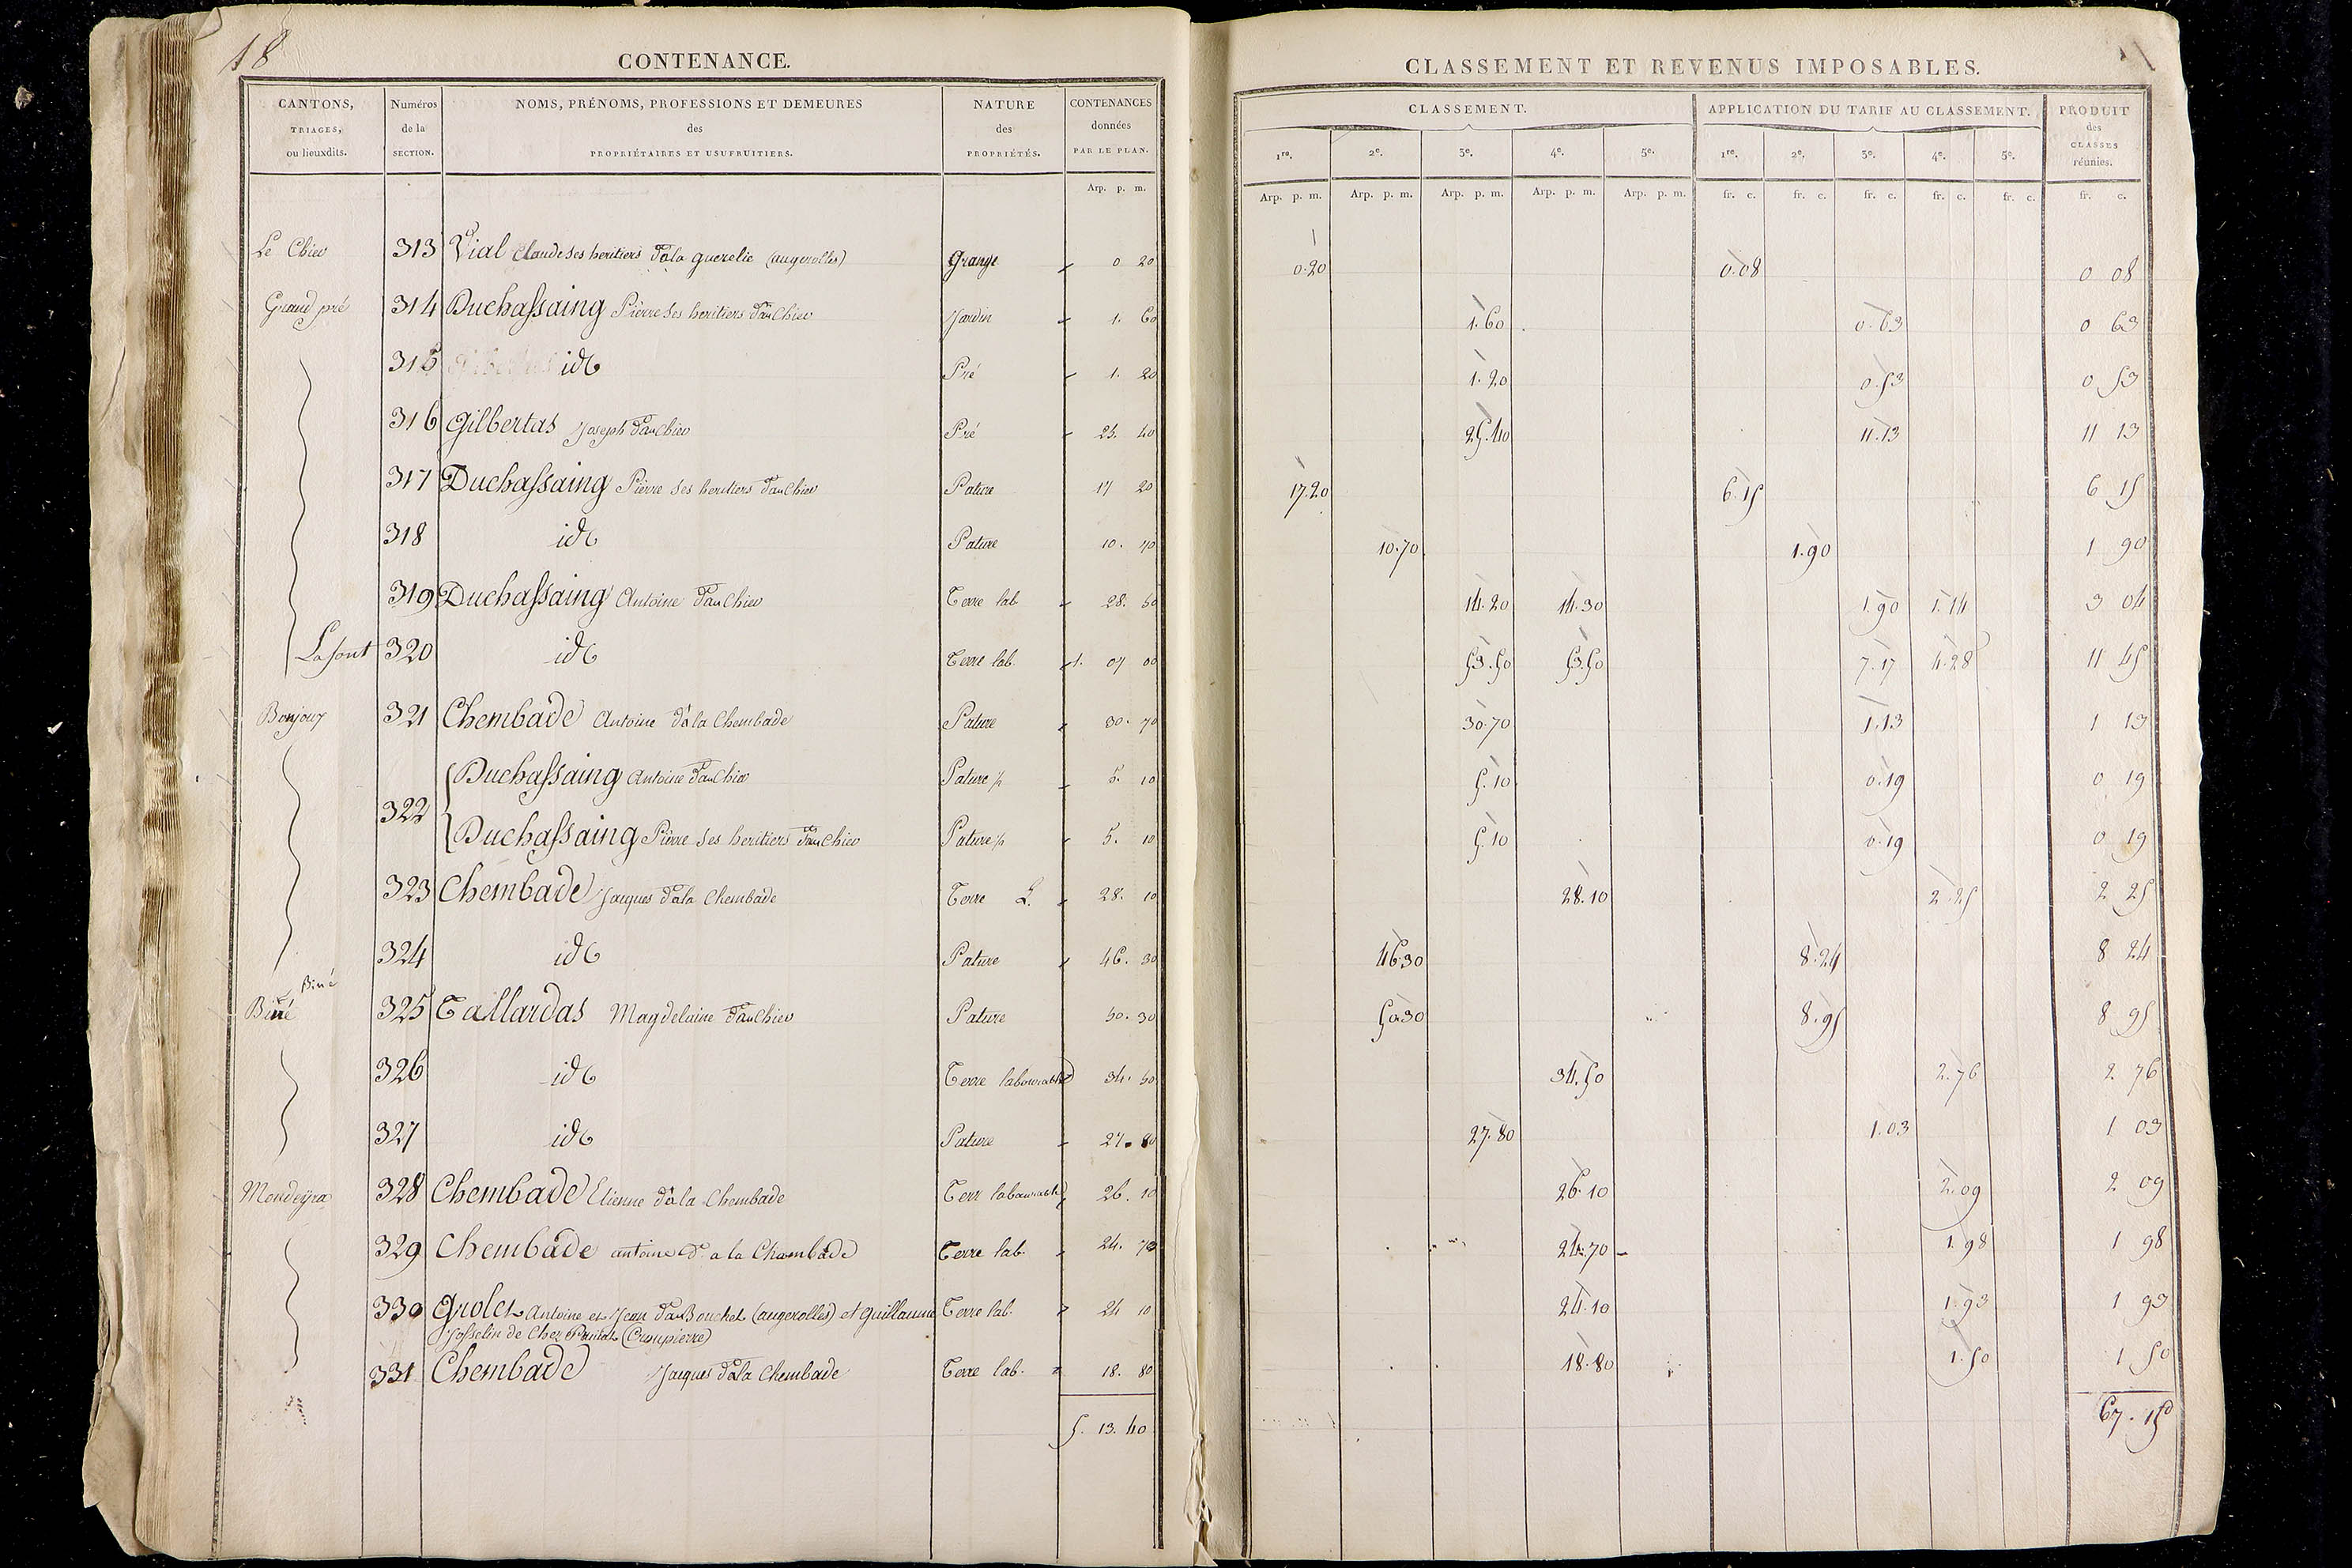 18
CONTENANCE.
CANTONS, TRIAGES, ou lieuxdits.
Numéros de la SECTION.
NOMS, PRÉNOMS, PROFESSIONS ET DEMEURES des PROPRIÉTAIRES ET USUFRUITIERS.
NATURE des PROPRIÉTÉS.
CONTENANCES données PAR LE PLAN.
Arp. p. m.
CLASSEMENT ET REVENUS IMPOSABLES.
CLASSEMENT. APPLICATION DU TARIF AU CLASSEMENT. PRODUIT des CLASSES réunies.
1re. 2e. 3e. 4e. 5e. 1re. 2e. 3e. 4e. 5e.
Arp. p. m. Arp. p. m. Arp. p. m. Arp. p. m. Arp. p. m. fr. c. fr. c. fr. c. fr. c. fr. c. fr. c.
Le Chiev 313 Vial Claude ses heritiers d. à la guerelie (augerolles) Grange 0 20 0.20 0.08 0 08
Grand pré 314 Duchassaing Pierre ses heritiers d. au Chiev Jardin 1. 60 1.60 0.63 0 63
315 id Pré 1. 20 1.20 0.53 0 53
316 Gilbertas Joseph d. au Chiev Pré 25. 40 25.40 11.13 11 13
317 Duchassaing Pierre ses heritiers d. au Chiev Pature 17 20 17.20 6.15 6 15
318 id Pature 10. 70 10.70 1.90 1 90
319 Duchassaing Antoine d. au Chiev Terre lab 28. 50 14.20 14.30 1.90 1.14 3 04
Lafont 320 id Terre lab. 1. 07 00 53.50 53.50 7.17 4.28 11 45
Bonjour 321 Chembade Antoine d. à la Chembade Pature 30. 70 30.70 1.13 1 13
322 Duchassaing Antoine d. au Chiev Pature ½ 5. 10 5.10 0.19 0 19
Duchassaing Pierre ses heritiers d. au Chiev Pature ½ 5. 10 5.10 0.19 0 19
323 Chembade Jacques d. à la Chembade Terre L. 28. 10 28.10 2.25 2 25
324 id Pature 46. 30 46.30 8.24 8 24
Biné
Biné 325 Tallardas Magdelaine d. au Chiev Pature 50. 30 50.30 8.95 8 95
326 id Terre labourable 34. 50 34.50 2.76 2 76
327 id Pature 27. 80 27.80 1.03 1 03
Mondeyra 328 Chembade Etienne d. à la Chembade Terr labourable 26. 10 26.10 2.09 2 09
329 Chembade antoine d. a la Chambade Terre lab. 24. 70 24.70 1.98 1 98
330 Grolet Antoine et Jean d. au Bouchet (augerolles) et Guillaume Terre lab. 24 10 24.10 1.93 1 93
Josselin de Chez (Courpierre)
331 Chembade Jacques d. à la Chembade Terre lab. 18. 80 18.80 1.50 1 50
5. 13. 40 67.15